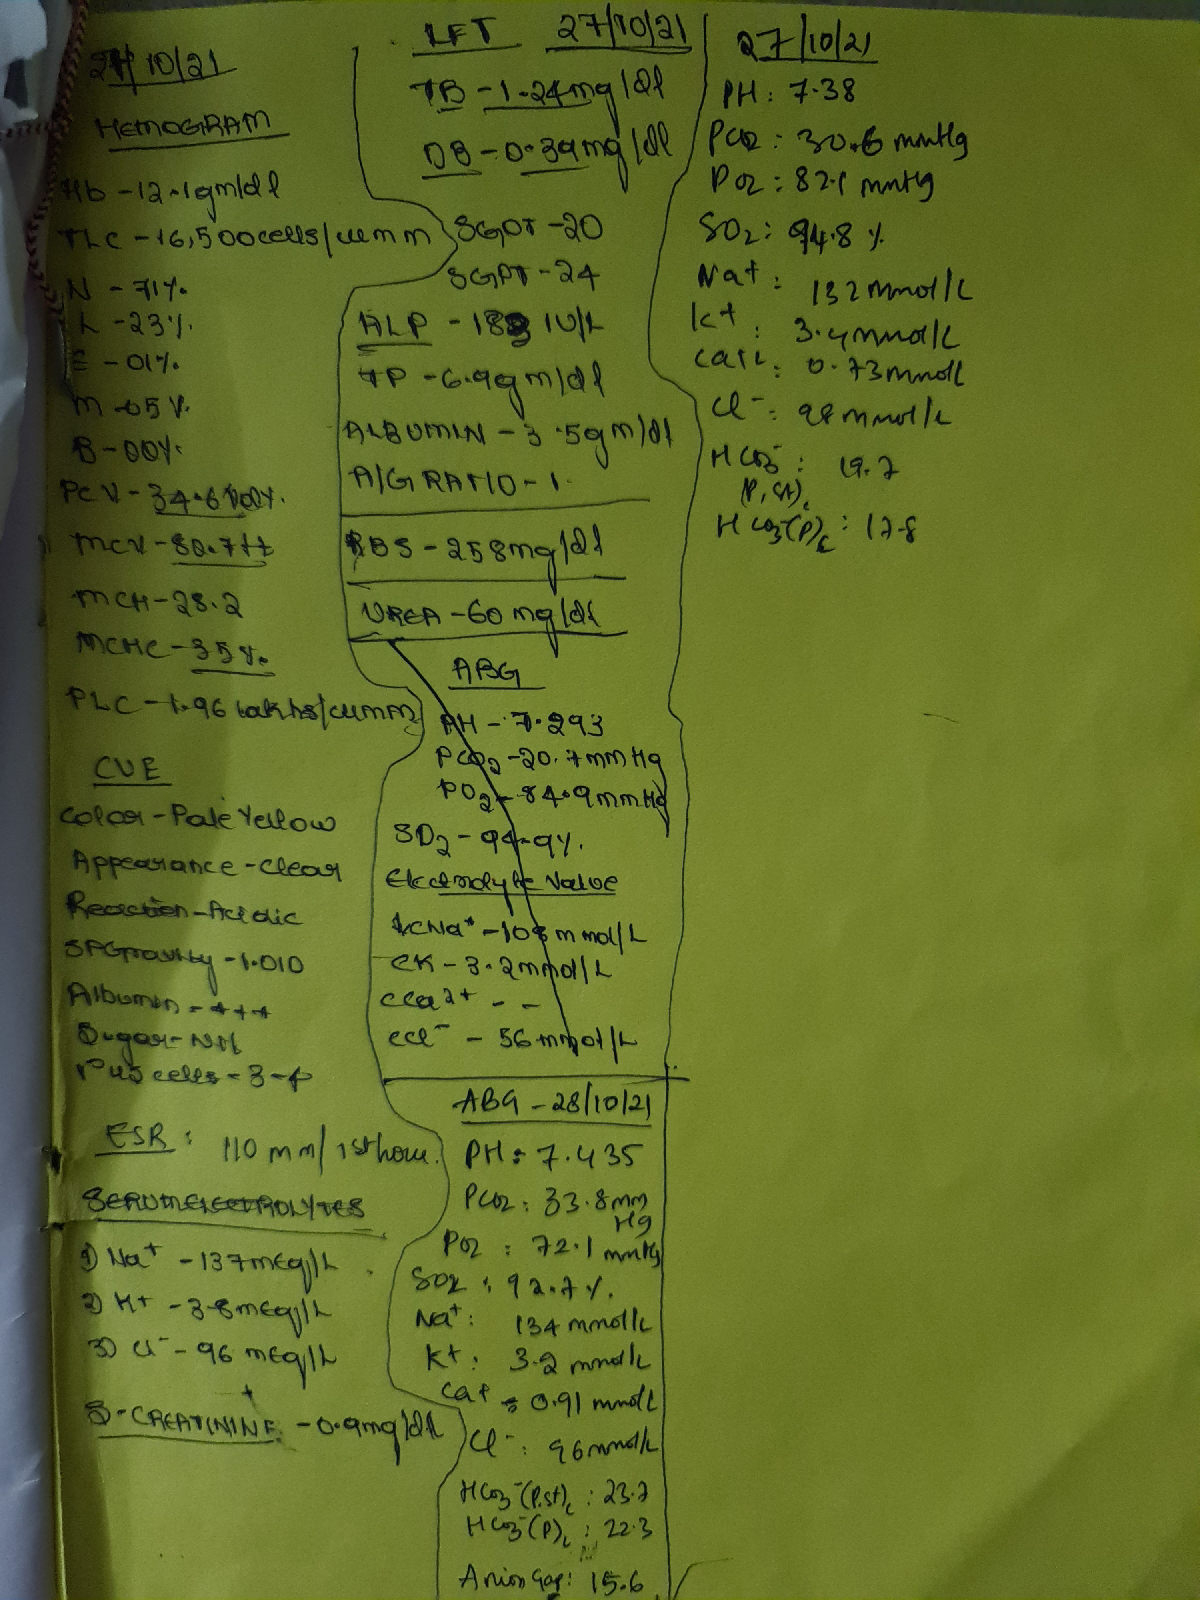 27/10/21
HEMOGRAM
Hb - 12.1gm/dl
TLC - 16,500cells/cumm
N - 71%
L - 23%
E - 01%
M - 05%
B - 00%
PCV - 34.6 Vol%.
MCV - 80.7ft
MCH - 28.2
MCHC - 35%
PLC - 1.96 lakhs/cumm
CUE
Color - Pale Yellow
Appearance - Clear
Reaction - Acidic
SPGravity - 1.010
Albumin - +++
Sugar - Nil
Pus cells - 3-4
ESR : 110 mm/1st hour.
SERUM ELECTROLYTES
1) Na+ - 137mEq/L
2) K+ - 3.8mEq/L
3) Cl- - 96 mEq/L
S-CREATININE - 0.9mg/dl
LFT 27/10/21
TB - 1.24mg/dl
DB - 0.39mg/dl
SGOT - 20
SGPT - 24
ALP - IU/L
TP - 6.9gm/dl
ALBUMIN - 3.5gm/dl
A/G RATIO - 1.
RBS - 258mg/dl
UREA - 60 mg/dl
ABG
PH - 7.293
PCO2 - 20.7mmHg
PO2 - 84.9mmHg
SO2 - 94.9%.
Electrolyte Value
cNa+ - 108 mmol/L
cK - 3.2mmol/L
cCa2+ - -
cCl- - 56 mmol/L
ABG - 28/10/21
PH : 7.435
PCO2 : 33.8mm
Hg
PO2 : 72.1 mmHg
SO2 : 92.7%.
Na+ : 134 mmol/L
K+ : 3.2 mmol/L
Ca+ : 0.91 mmol/L
Cl- : 96mmol/L
HCO3-(P,st)c : 23.7
HCO3-(P)c : 22.3
Anion Gap : 15.6
27/10/21
PH : 7.38
PCO2 : 30.6 mmHg
PO2 : 82.1 mmHg
SO2 : 94.8 %
Na+ : 132 mmol/L
K+ : 3.4mmol/L
Ca+2 : 0.73mmol/L
Cl- : 98 mmol/L
HCO3- : 19.7
(P,st)c
HCO3-(P)c : 17.8